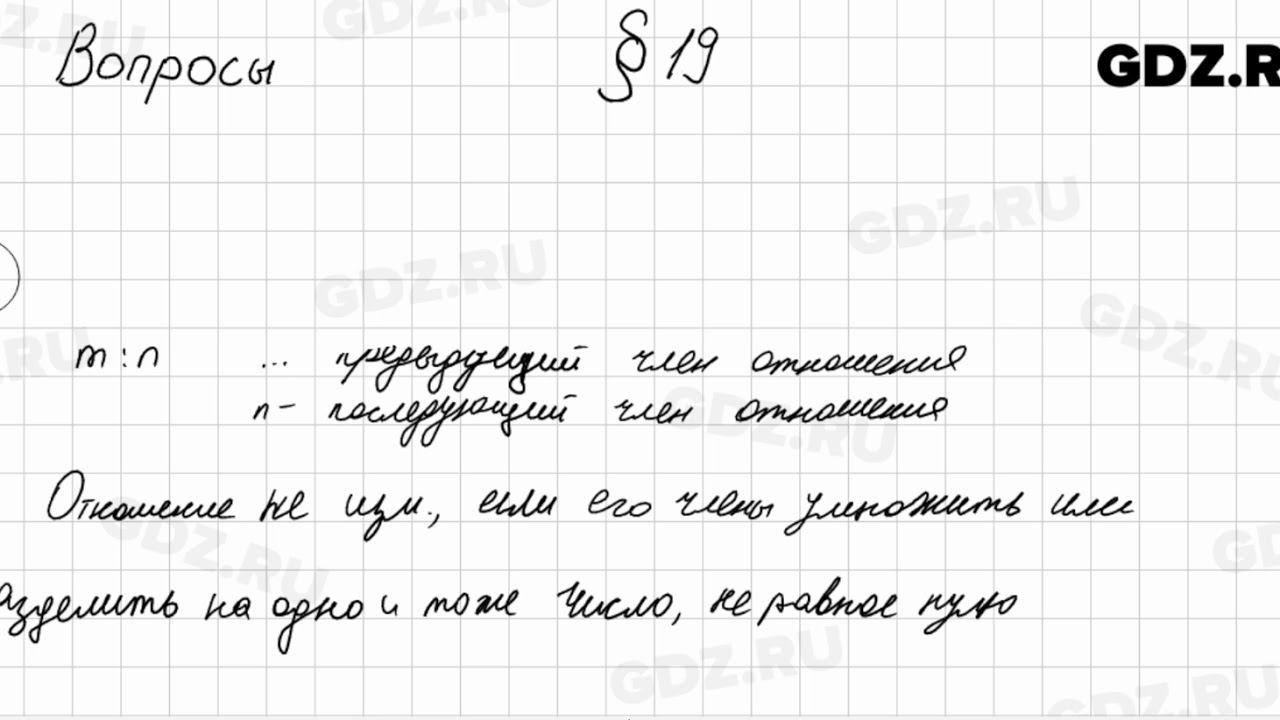 Вопросы § 19 GDZ.R
m : n ... предыдущий член отношения
n - последующий член отношения
Отношение не изм., если его члены умножить или
азделить на одно и тоже число, не равное нулю